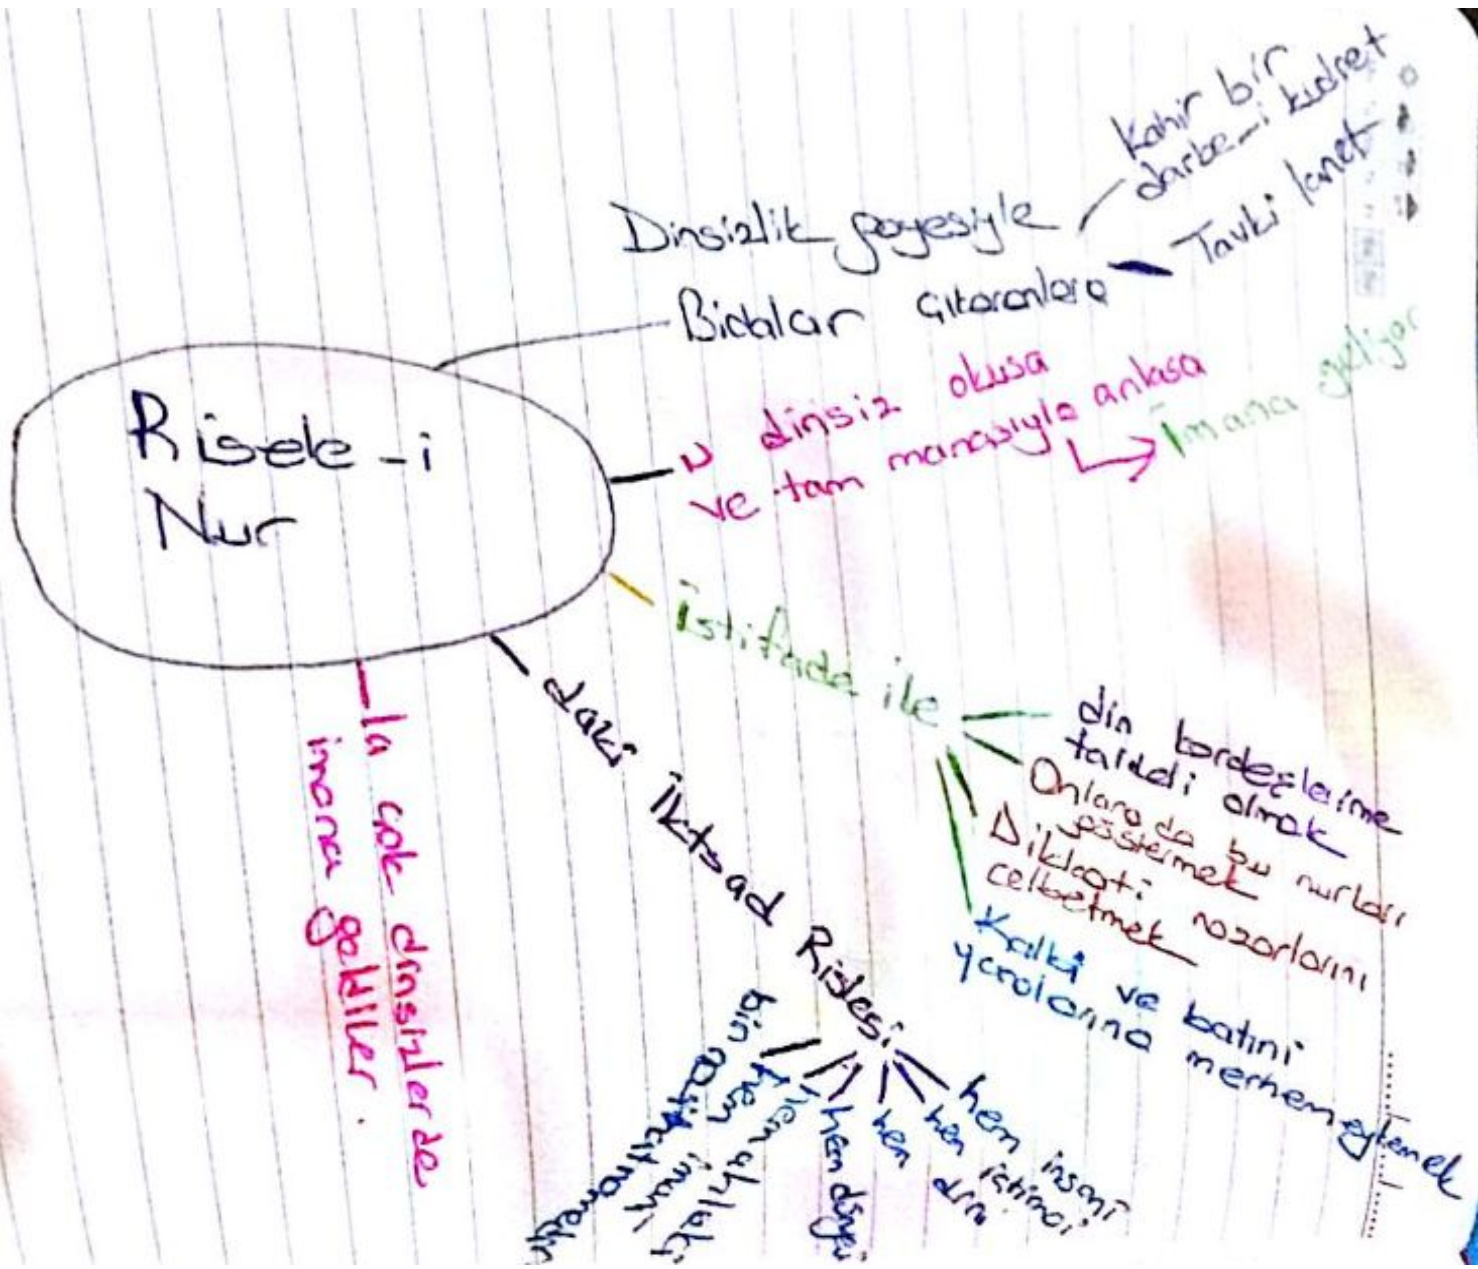 Risele-i
Nur
Dinsizlik payesiyle
Bidalar çıkaranlara
Kahir bir
darbe-i kudret
Tavki lanet
dinsiz okusa
ve tam manasıyla anlasa
İmana geliyor
İstifade ile
din kardeşlerime
talebi olmak
Onlara da bu nurları
göstermek
Dikkati nazarlarını
celbetmek
Kalbi ve batıni
yaralarına merhem eylemek
daki İktsad Rislesi
hem insani
hem ictimai
hem dini
hem dünyevi
hem ahlaki
hem imani
bin
la çok dinsizler de
imana geldiler.